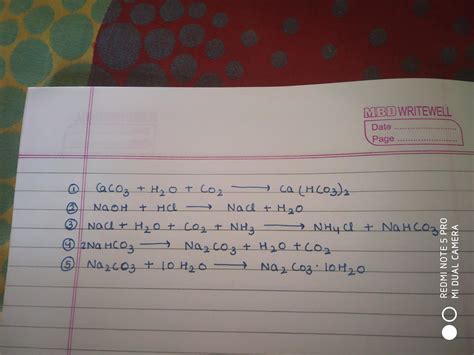 MBD WRITEWELL
Date ....................
Page ....................
① CaCO₃ + H₂O + CO₂ ⟶ Ca(HCO₃)₂
② NaOH + HCl ⟶ NaCl + H₂O
③ NaCl + H₂O + CO₂ + NH₃ ⟶ NH₄Cl + NaHCO₃
④ 2NaHCO₃ ⟶ Na₂CO₃ + H₂O + CO₂
⑤ Na₂CO₃ + 10H₂O ⟶ Na₂CO₃·10H₂O
REDMI NOTE 5 PRO
MI DUAL CAMERA